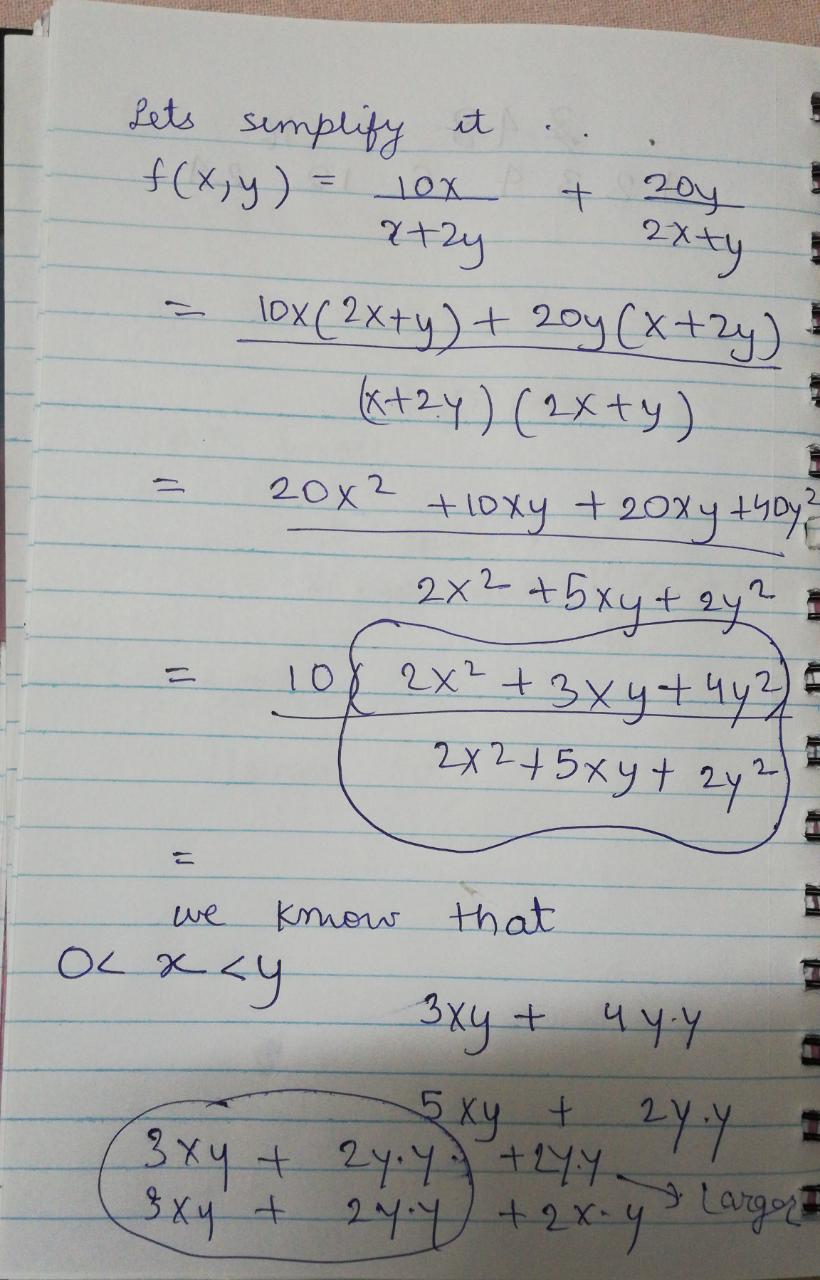 Lets simplify it . . .
f(x,y) = 10x + 20y
x+2y 2x+y
= 10x(2x+y) + 20y(x+2y)
(x+2y) (2x+y)
= 20x² +10xy +20xy +40y²
2x² +5xy + 2y²
= 10( 2x² + 3xy + 4y²)
2x²+5xy+ 2y²
=
we know that
0< x <y
3xy + 4y.y
5xy + 2y.y
3xy + 2y.y. +2y.y
3xy + 2y.y +2x.y → Larger